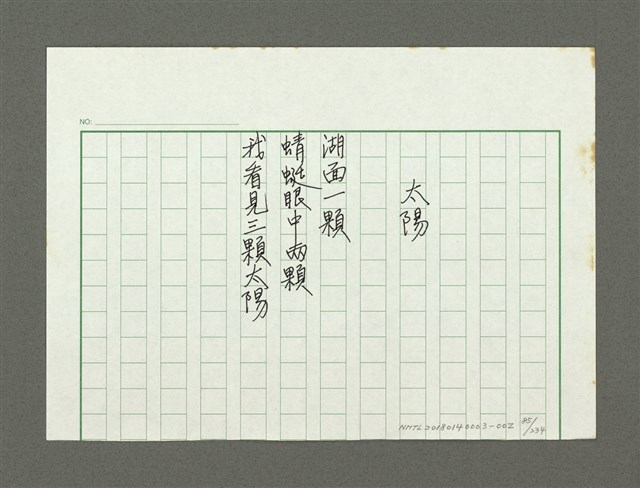 NO:
太陽
湖面一顆
蜻蜓眼中兩顆
我看見三顆太陽
NMTL20180140003-002
85/234